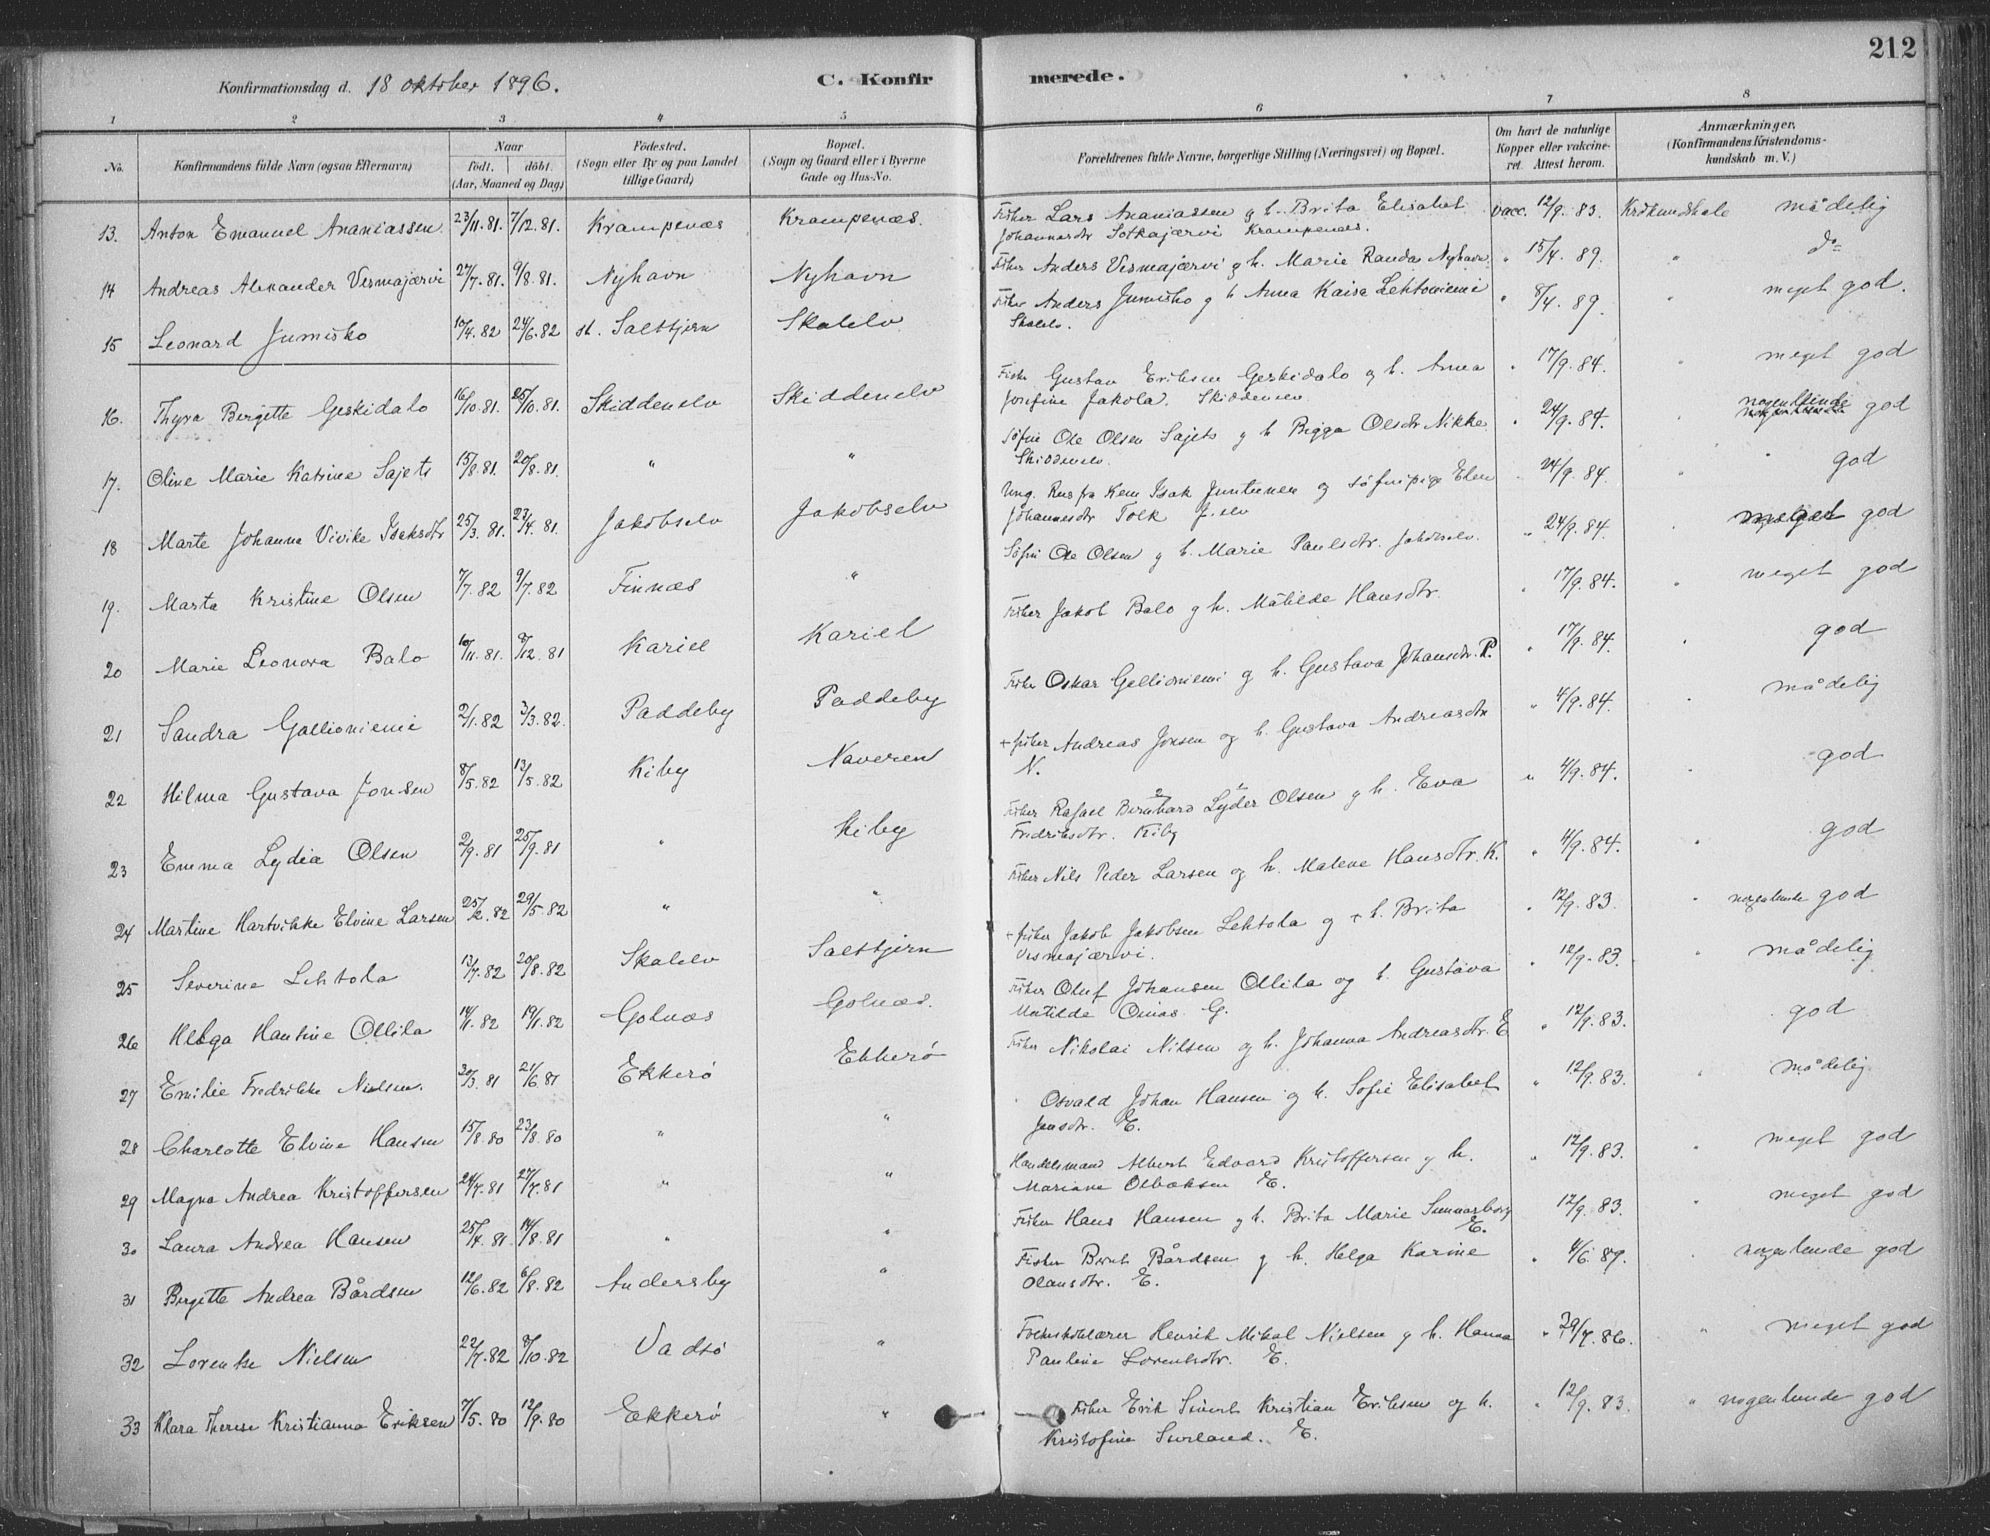 212
Konfirmationsdag d. 18 oktober 1896.
C. Konfirmerede.
1 2 3 4 5 6 7 8
No. Konfirmandens fulde Navn (ogsaa Efternavn) Naar födt. döbt. (Aar, Maaned og Dag) Födested. (Sogn eller By og paa Landet tillige Gaard) Bopæl. (Sogn og Gaard eller i Byerne Gade og Hus-No. Forældrenes fulde Navne, borgerlige Stilling (Næringsvei) og Bopæl. Om havt de naturlige Kopper eller vakcineret. Attest herom. Anmærkninger. (Konfirmandens Kristendomskundskab m. V.)
13. Anton Emanuel Ananiassen 23/11.81. 7/12.81. Krampenæs Krampenæs. Fisker Lars Ananiassen g h. Brita Elisabet vacc. 12/9.83. Krdkundskale mådelig
Johannesdtr Sotkajærvi Krampenæs.
14 Andreas Alexander Vismajærvi 27/7.81. 9/8.81. Nyhavn Nyhavn Fisker Anders Vismajærvi g h. Marie Randa Nyhavn. " 15/4.89. " do
15 Leonard Jumisko 10/4.82 24/6.82 st. Saltbjern Skalelv Fisker Anders Jumisko g h Anna Kaisa Lehtoniemi " 8/4.89. " meget god.
Skalelv.
16. Thyra Bergitte Geskidalo 16/10.81. 25/10.81. Skiddenelv Skiddenelv Fisker Gustav Eriksen Geskidalo og h. Anna " 17/9.84. " meget god
Josefine Jakola. Skiddenelv
17. Oline Marie Katrine Sajets 15/8.81. 20/8.81. " " Söfin Ole Olsen Sajets g h Bigga Olsdtr Nikke " 24/9.84. " nogenlunde god
Skiddenelv.
18 Marte Johanna Vivike Isaksdtr 25/3.81. 23/4.81. Jakobselv Jakobselv Ung. Rus fra Kem Isak Juntunen og söfinpige Elen " 24/9.84. " god
Johannesdtr Tolk J.elv
19. Marta Kristine Olsen 7/7.82 9/7.82 Finnæs " Söfin Ole Olsen g h. Marie Paulsdtr. Jakobselv. " 24/9.84. " meget god
20 Marie Leonora Balo 10/11.81. 8/12.81 Kariel Kariel Fisker Jakob Balo g h. Matilde Hansdtr. " 17/9.84. " meget god
21 Sandra Gallioniemi 2/1.82 3/3.82. Paddeby Paddeby Fisker Oskar Gallioniemi g h. Gustava Johansdtr. P. " 17/9.84. " god
22 Hilma Gustava Jonsen 8/5.82 13/5.82 Kiby Naveren + fisker Andreas Jonsen og h. Gustava Andreasdtr " 4/9.84. " mådelig
N.
23 Emma Lydia Olsen 2/9.81 25/9.81 " Kiby Fisker Rafael Bernhard Lyder Olsen g h. Eva " 4/9.84. " god
Fredriksdtr. Kiby
24 Martine Hartvikke Elvine Larsen 25/2.82 29/5.82 " " Fisker Nils Peder Larsen og h. Malene Hansdtr. K. " 4/9.84. " god
25 Severine Lehtola 13/7.82 20/8.82 Skalelv Saltbjern + fisker Jakob Jakobsen Lehtola og + h. Brita " 12/9.83. " nogenlunde god
Vismajærvi.
26 Helga Hantine Ollila 14/1.82 19/1.82 Golnæs Golnæs. Fisker Oluf Johansen Ollila og h. Gustava " 12/9.83. " mådelig
Matilde Oinas. G.
27 Emilie Fredrikke Nielsen. 30/3.81 21/6.81 Ekkerö Ekkerö Fisker Nikolai Nilsen og h. Johanna Andreasdtr. E " 12/9.83. " god
28 Charlotte Elvine Hansen 15/8.80 23/8.80 " " " Osvald Johan Hansen og h. Sofie Elisabet " 12/9.83. " mådelig
Jensdtr. E.
29 Magna Andrea Kristoffersen 24/7.81 27/7.81 " " Handelsmand Albert Edvard Kristoffersen g h. " 12/9.83. " meget god
Mariane Olbæksen E.
30 Laura Andrea Hansen 25/4.81. 14/8.81 " " Fisker Hans Hansen g h. Brita Marie Sunnarborg " 12/9.83. " meget god
E.
31 Bergitte Andrea Bårdsen 12/6.82 6/8.82 Andersby " Fisker Bernt Bårdsen g h. Helga Karine " 4/6.89. " nogenlunde god
Olausdtr. E.
32 Lorentse Nielsen 22/7.82 8/10.82 Vadsö " Folkeskolelærer Henrik Mikal Nielsen g h. Hanna " 29/7.86. " meget god
Pauline Lorentsdtr. E.
33 Klara Therese Kristianna Eriksen 7/5.80 12/9.80 Ekkerö " Fisker Erik Sivert Kristian Eriksen og h. " 12/9.83. " nogenlunde god
Kristofine Sivland. E.